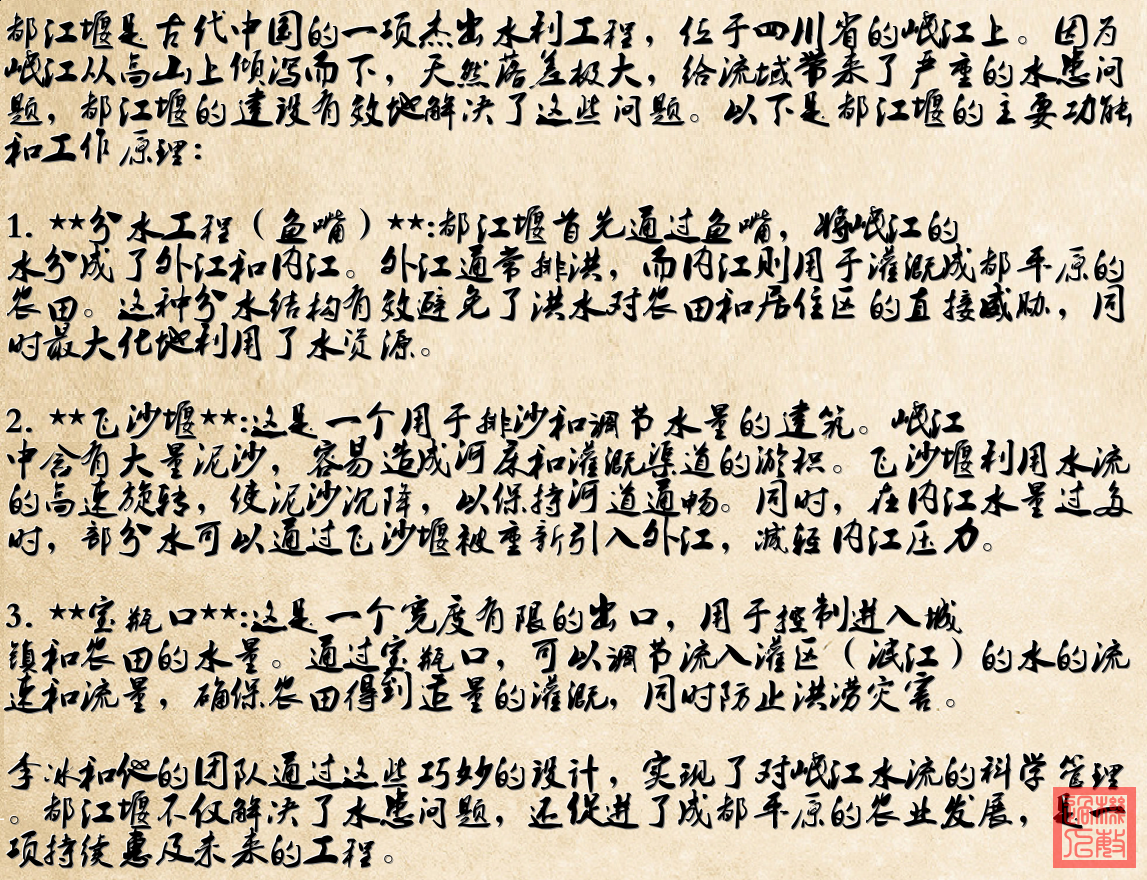 都江堰是古代中国的一项杰出水利工程，位于四川省的岷江上。因为
岷江从高山上倾泻而下，天然落差极大，给流域带来了严重的水患问
题，都江堰的建设有效地解决了这些问题。以下是都江堰的主要功能
和工作原理：
1. **分水工程（鱼嘴）**:都江堰首先通过鱼嘴，将岷江的
水分成了外江和内江。外江通常排洪，而内江则用于灌溉成都平原的
农田。这种分水结构有效避免了洪水对农田和居住区的直接威胁，同
时最大化地利用了水资源。
2. **飞沙堰**:这是一个用于排沙和调节水量的建筑。岷江
中含有大量泥沙，容易造成河床和灌溉渠道的淤积。飞沙堰利用水流
的高速旋转，使泥沙沉降，以保持河道通畅。同时，在内江水量过多
时，部分水可以通过飞沙堰被重新引入外江，减轻内江压力。
3. **宝瓶口**:这是一个宽度有限的出口，用于控制进入城
镇和农田的水量。通过宝瓶口，可以调节流入灌区（泯江）的水的流
速和流量，确保农田得到适量的灌溉，同时防止洪涝灾害。
李冰和他的团队通过这些巧妙的设计，实现了对岷江水流的科学管理
。都江堰不仅解决了水患问题，还促进了成都平原的农业发展，是一
项持续惠及未来的工程。